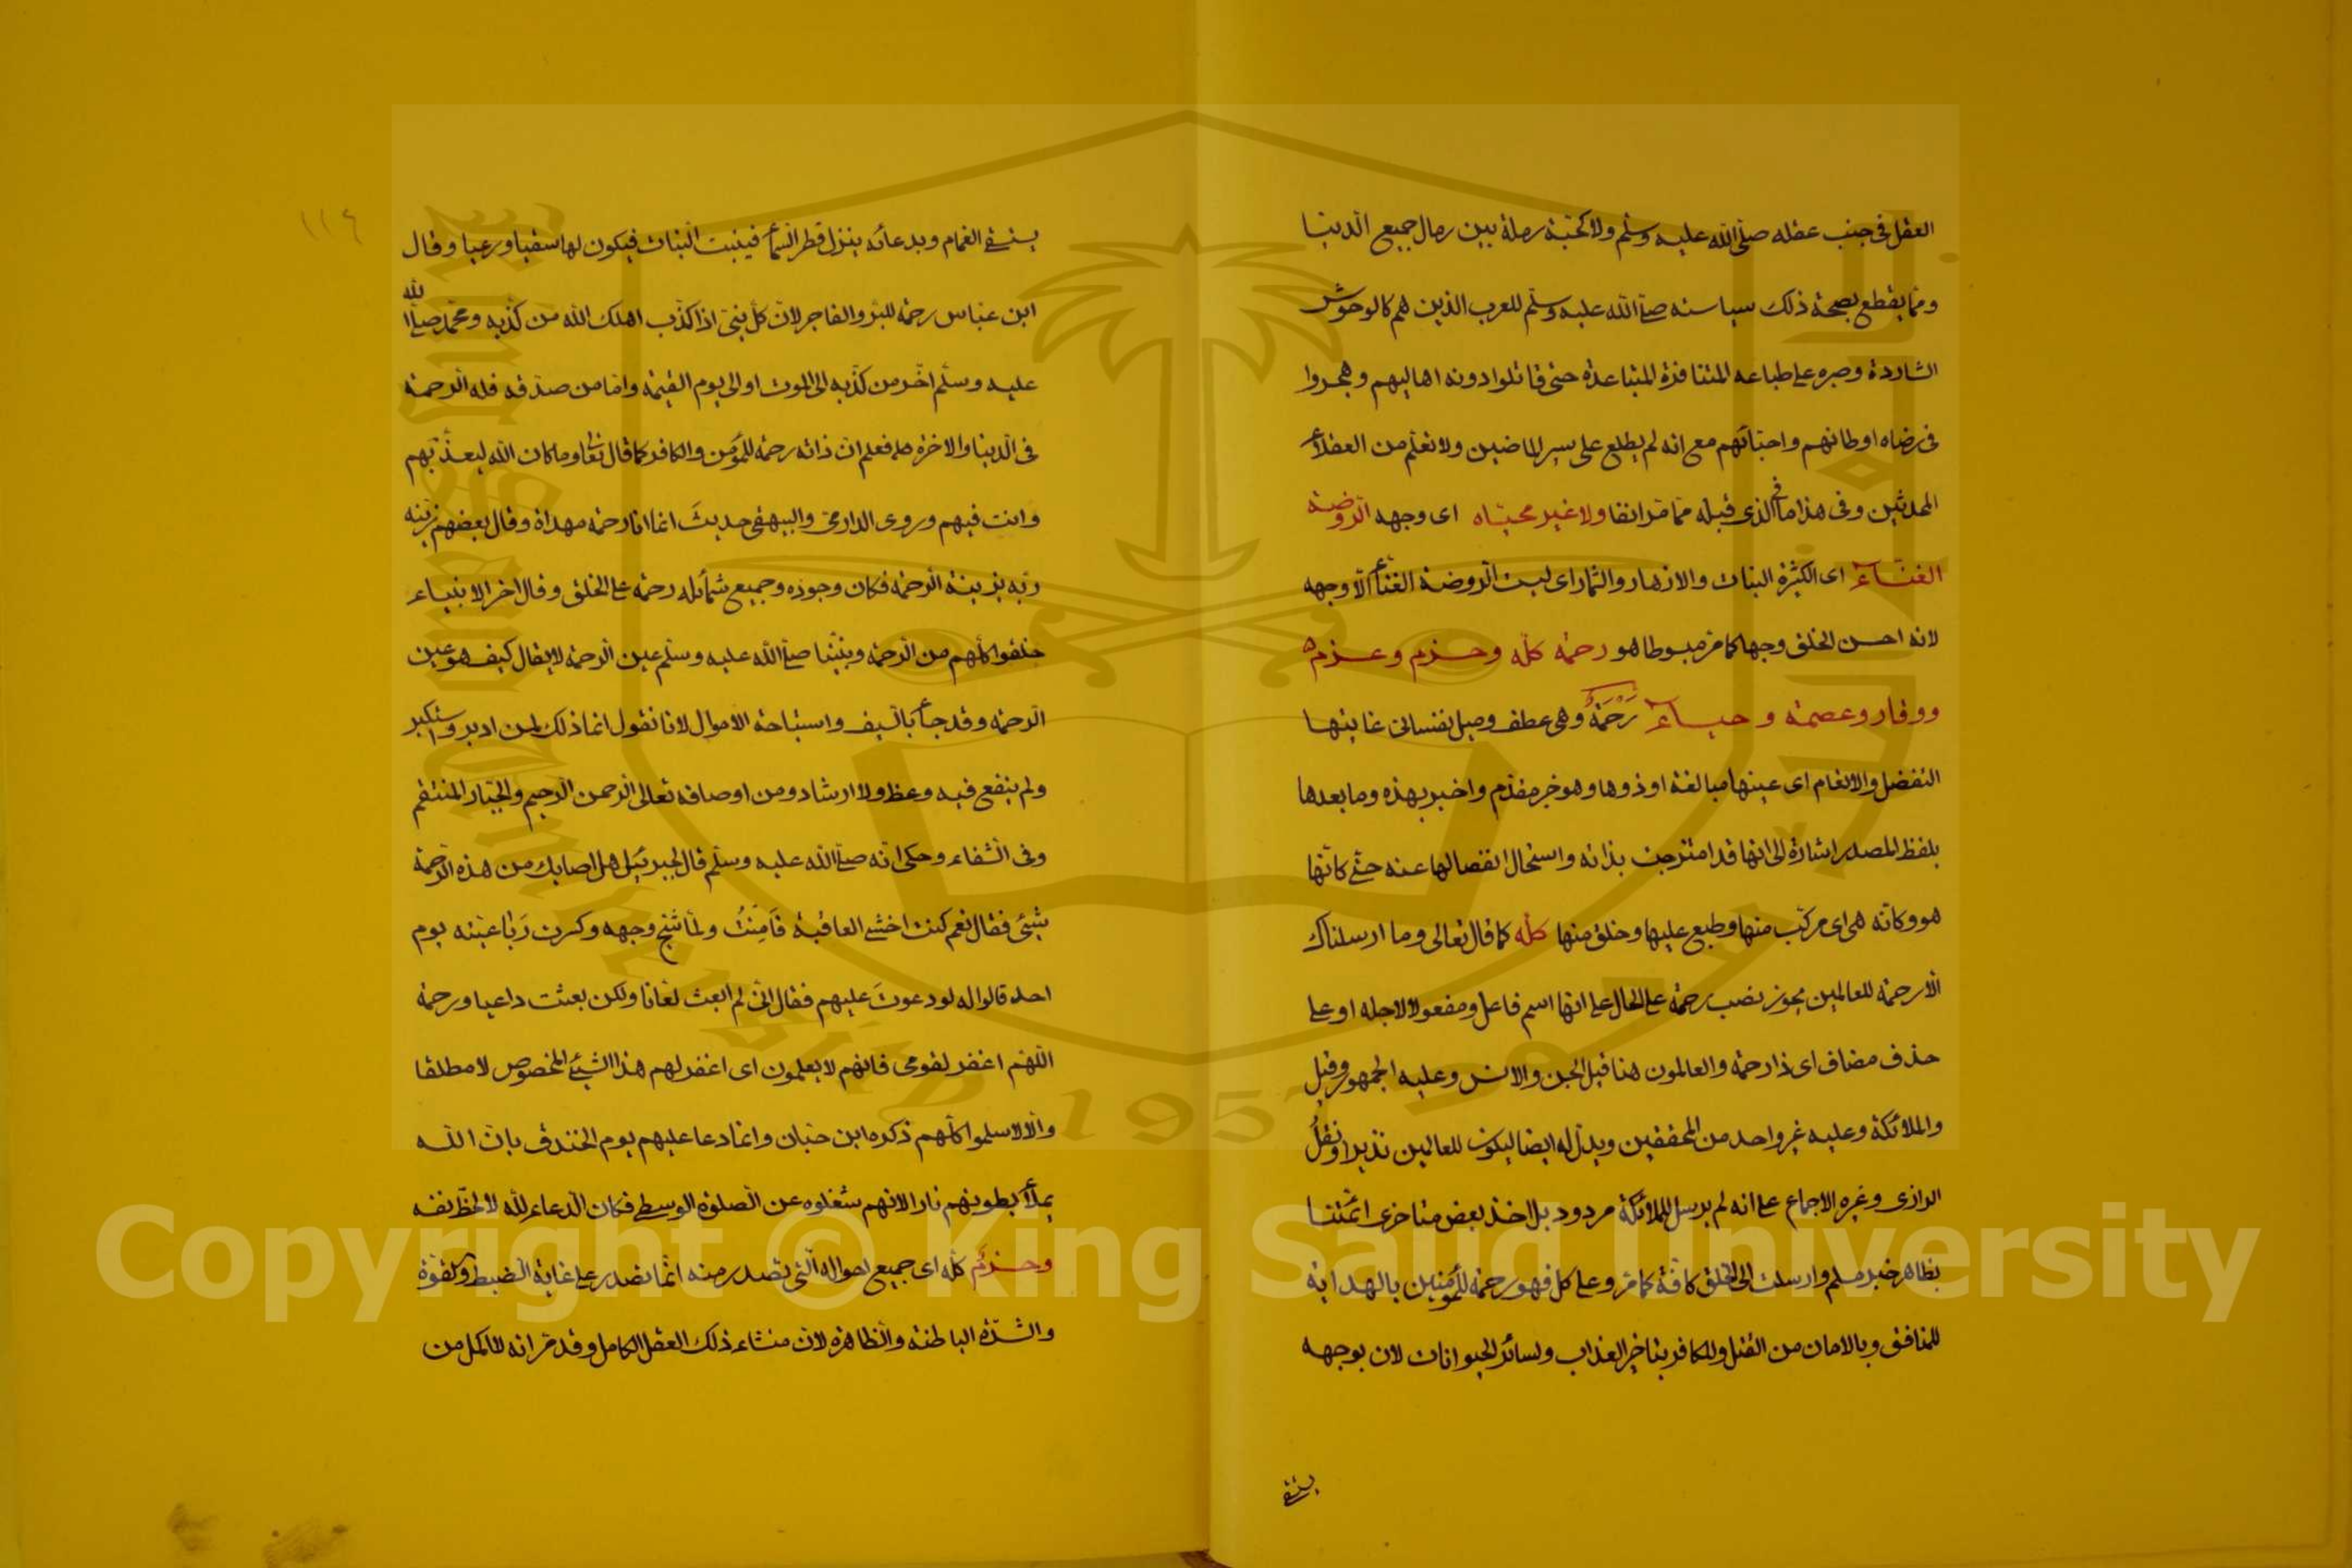 العقل فى جنب عقله صلى الله عليه وسلم ولا كحبة رملة بين رمال جميع الدنيا
ومما يقطع بصحة ذلك سياسته صلى الله عليه وسلم للعرب الذين هم كالوحوش
الشاردة وصبره على طباعه المتنافرة المتباعدة حتى قاتلوا دونه اهاليهم وهجروا
فى رضاه اوطانهم واحبائهم مع انه لم يطلع على سير الماضين ولا تعلم من العقلاء
المحدثين وفى هذا ما فى الذى قبله مما مر انفا ولا غير محياه اى وجهه الروضة
الغناء اى الكثيرة النبات والازهار والثمار اى ليست الروضة الغناء الا وجهه
لانه احسن الخلق وجها كما مر مبسوطا هو رحمة كله وحزم وعزم
ووقار وعصمة وحياء رحمة وهى عطف وميل نفسانى غايتها
التفضل والانعام اى عينها مبالغة او ذوها وهو خبر مقدم واخبر بهذه وما بعدها
بلفظ المصدر اشارة الى انها قد امتزجت بذاته واستحال انفصالها عنه حتى كانها
هو وكانه هى اى مركب منها وطبع عليها وخلق منها كله كما قال تعالى وما ارسلناك
الا رحمة للعالمين يجوز نصب رحمة على الحال على انها اسم فاعل ومفعولا لاجله او على
حذف مضاف اى ذا رحمة والعالمون هنا قيل الجن والانس وعليه الجمهور وقيل
والملائكة وعليه غير واحد من المحققين ويدل له ايضا ليكون للعالمين نذيرا ونقل
الرازى وغيره الاجماع على انه لم يرسل للملائكة مردود بل اخذ بعض متاخرى ائمتنا
بظاهر خبر مسلم وارسلت الى الخلق كافة كما مر وعلى كل فهو رحمة للمؤمنين بالهداية
للمنافق وبالامان من القتل وللكافر بتاخير العذاب ولسائر الحيوانات لان بوجهه
يستقى
١١٤
يستقى الغمام وبدعائه ينزل قطر السماء فينبت النبات فيكون لها سقيا ورعيا وقال
ابن عباس رحمة للبر والفاجر لان كل نبى اذا كذب اهلك الله من كذبه ومحمد صلى الله
عليه وسلم اخر من كذبه الى الموت او الى يوم القيمة واما من صدقه فله الرحمة
فى الدنيا والاخرة فعلم ان ذاته رحمة للمؤمن والكافر كما قال تعا وما كان الله ليعذبهم
وانت فيهم وروى الدارمى والبيهقى حديث انما انا رحمة مهداة وقال بعضهم زينه
ربه بزينة الرحمة فكان وجوده وجميع شمائله رحمة على الخلق وقال اخر الانبياء
خلقوا كلهم من الرحمة ونبينا صلى الله عليه وسلم عين الرحمة لا يقال كيف هو عين
الرحمة وقد جاء بالسيف واستباحة الاموال لانا نقول انما ذلك لمن ادبر واستكبر
ولم ينفع فيه وعظ ولا ارشاد ومن اوصافه تعالى الرحمن الرحيم والجبار المنتقم
وفى الشفاء وحكى انه صلى الله عليه وسلم قال لجبرئيل هل اصابك من هذه الرحمة
شئ فقال نعم كنت اخشى العاقبة فامنت ولما شج وجهه وكسرت رباعيته يوم
احد قالوا له لو دعوت عليهم فقال انى لم ابعث لعانا ولكن بعثت داعيا ورحمة
اللهم اغفر لقومى فانهم لا يعلمون اى اغفر لهم هذا الشئ المخصوص لا مطلقا
والا لاسلموا كلهم ذكره ابن حبان وانما دعا عليهم يوم الخندق بان الله
يملأ بطونهم نارا لانهم شغلوه عن الصلوة الوسطى فكان الدعاء لله لا لحظ نفسه
وحزم كله اى جميع احواله التى تصدر منه انما تصدر على غاية الضبط والقوة
والشدة الباطنة والظاهرة لان منشاء ذلك العقل الكامل وقد مر انه لا اكمل من
Copyright © King Saud University
King Saud University
1957